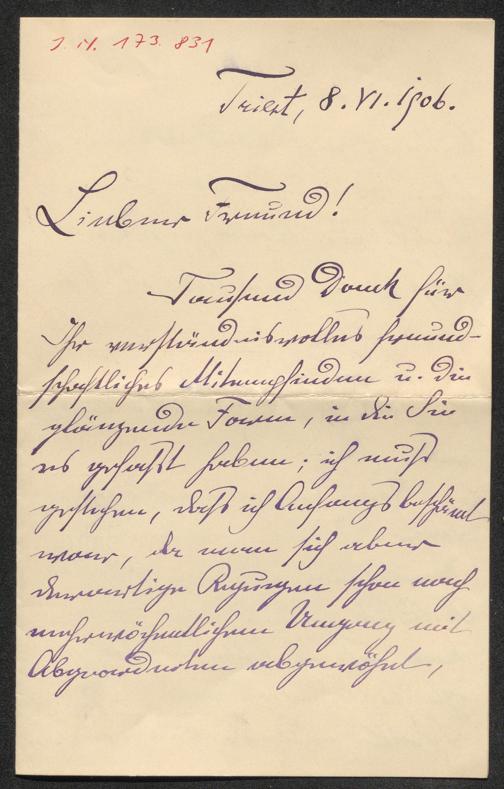 J. N. 173.831
Triest, 8. VI. 1906.
Liebster Freund!
Tausend Dank für
Ihr verständnisvolles freund-
schaftliches Mitempfinden u. die
glänzende Form, in die Sie
es gefasst haben; ich muß
gestehen, daß ich Anfangs beschämt
war, da man sich aber
derartige Regungen schon nach
mehrwöchentlichem Umgang mit
Abgeordneten abgewöhnt,